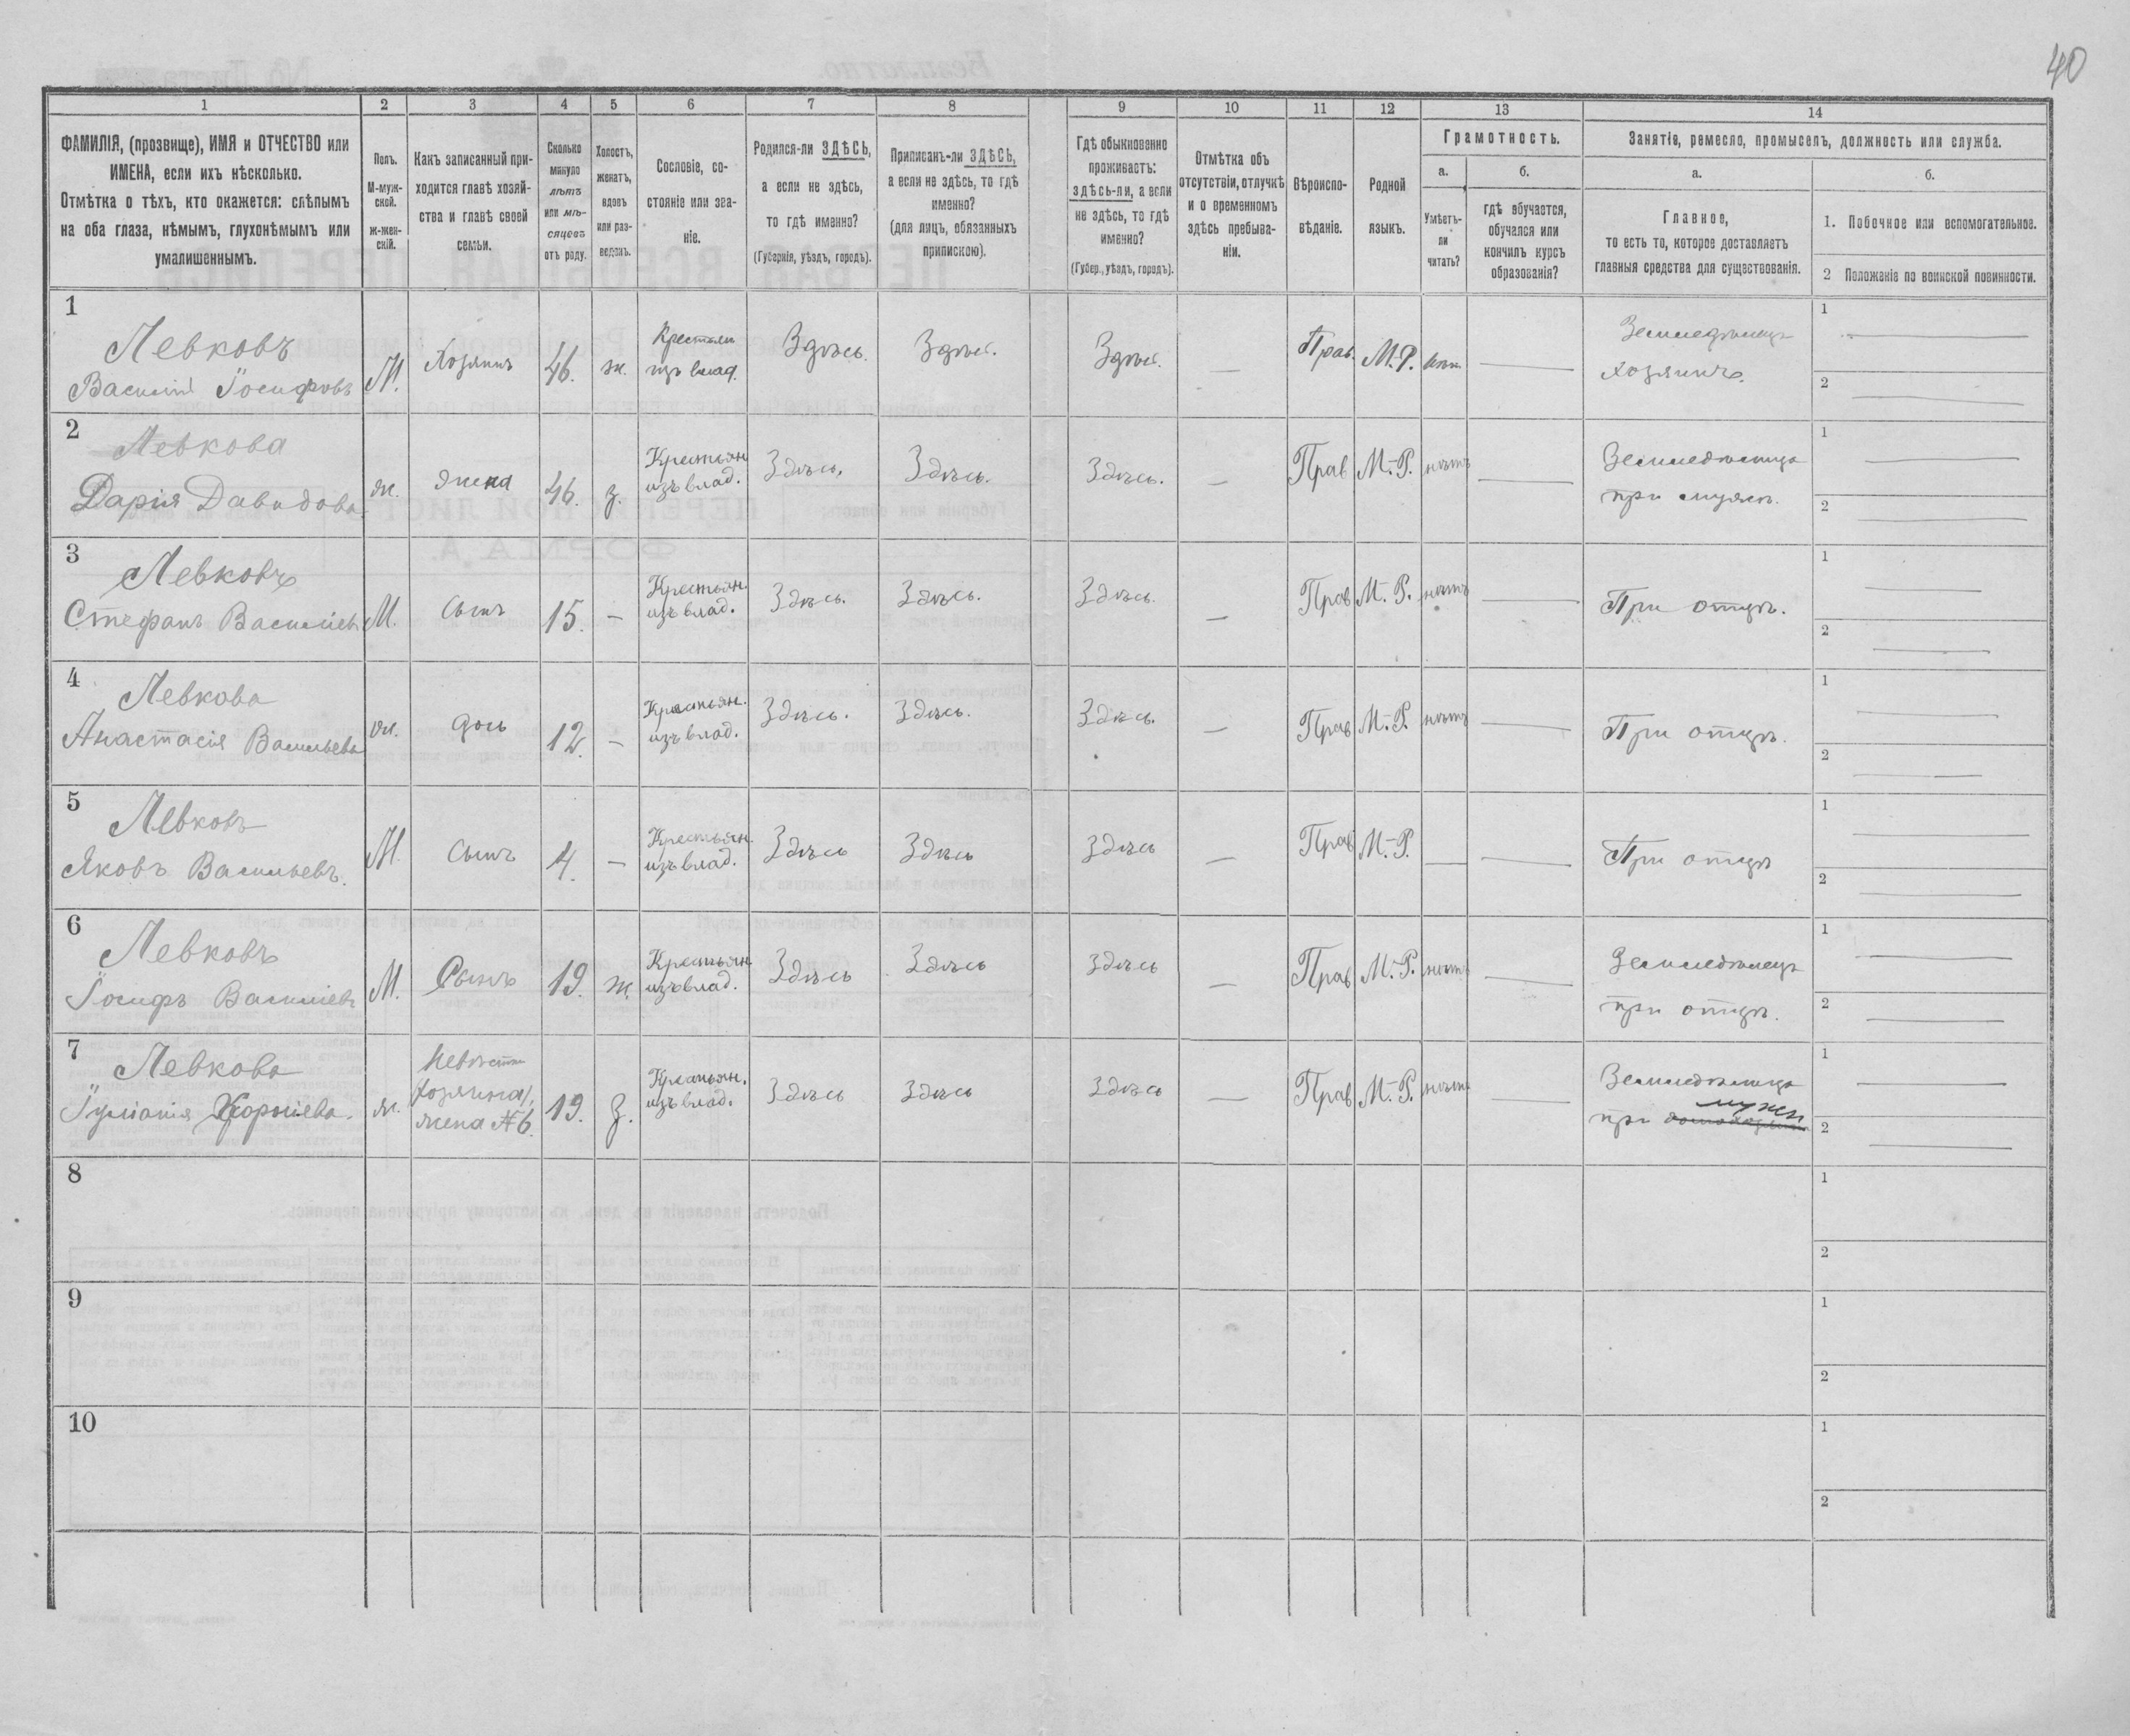 40
1 2 3 4 5 6 7 8 9 10 11 12 13 14
ФАМИЛІЯ, (прозвище), ИМЯ и ОТЧЕСТВО или
ИМЕНА, если ихъ нѣсколько.
Отмѣтка о тѣхъ, кто окажется: слѣпымъ
на оба глаза, нѣмымъ, глухонѣмымъ или
умалишеннымъ.
Полъ.
М-муж-
ской.
ж-жен-
скій.
Какъ записанный при-
ходится главѣ хозяй-
ства и главѣ своей
семьи.
Сколько
минуло
лѣтъ
или мѣ-
сяцевъ
отъ роду.
Холостъ,
женатъ,
вдовъ
или раз-
веденъ.
Сословіе, со-
стояніе или зва-
ніе.
Родился-ли ЗДѢСЬ,
а если не здѣсь,
то гдѣ именно?
(Губернія, уѣздъ, городъ).
Приписанъ-ли ЗДѢСЬ,
а если не здѣсь, то гдѣ
именно?
(для лицъ, обязанныхъ
припискою).
Гдѣ обыкновенно
проживаетъ:
здѣсь-ли, а если
не здѣсь, то гдѣ
именно?
(Губер., уѣздъ, городъ).
Отмѣтка объ
отсутствіи, отлучкѣ
и о временномъ
здѣсь пребыва-
ніи.
Вѣроиспо-
вѣданіе.
Родной
языкъ.
Грамотность.
а.
Умѣетъ-
ли
читать?
б.
гдѣ обучается,
обучался или
кончилъ курсъ
образованія?
Занятіе, ремесло, промыселъ, должность или служба.
а.
Главное,
то есть то, которое доставляетъ
главныя средства для существованія.
б.
1. Побочное или вспомогательное.
2 Положеніе по воинской повинности.
1
Левковъ
Василій Іосифовъ
М.
Хозяинъ
46.
ж.
Крестьян
изъ влад.
Здѣсь.
Здѣсь.
Здѣсь.
—
Прав.
М.Р.
—
Земледѣлецъ
Хозяинъ.
1 —
2 —
2
Левкова
Дарія Давидова
ж.
жена
46.
з.
Крестьян
изъ влад.
Здѣсь.
Здѣсь.
Здѣсь.
—
Прав
М.-Р.
нѣтъ
—
Земледѣлица
при мужѣ.
1 —
2 —
3
Левковъ
Стефанъ Василіев
М.
Сынъ
15.
—
Крестьян.
изъ влад.
Здѣсь.
Здѣсь.
Здѣсь.
—
Прав
М.-Р.
нѣтъ
—
При отцѣ.
1 —
2 —
4
Левкова
Анастасія Васильева
ж.
Дочь
12.
—
Крестьян.
изъ влад.
Здѣсь.
Здѣсь.
Здѣсь.
—
Прав
М.-Р.
нѣтъ
—
При отцѣ.
1 —
2 —
5
Левковъ
Яковъ Васильевъ.
М.
Сынъ
4.
—
Крестьян.
изъ влад.
Здѣсь
Здѣсь
Здѣсь
—
Прав
М.-Р.
—
—
При отцѣ
1 —
2 —
6
Левковъ
Іосифъ Василіевъ
М.
Сынъ
19.
ж.
Крестьян
изъ влад.
Здѣсь
Здѣсь
Здѣсь
—
Прав
М.-Р.
нѣтъ
—
Земледѣлецъ
при отцѣ.
1 —
2 —
7
Левкова
Іуліанія Корніева.
ж.
Невѣстка
хозяина,
жена №6.
19.
з.
Крестьян.
изъ влад.
Здѣсь
Здѣсь
Здѣсь
—
Прав
М.-Р.
нѣтъ
—
Земледѣлица
при мужѣ
1 —
2 —
8
1
2
9
1
2
10
1
2